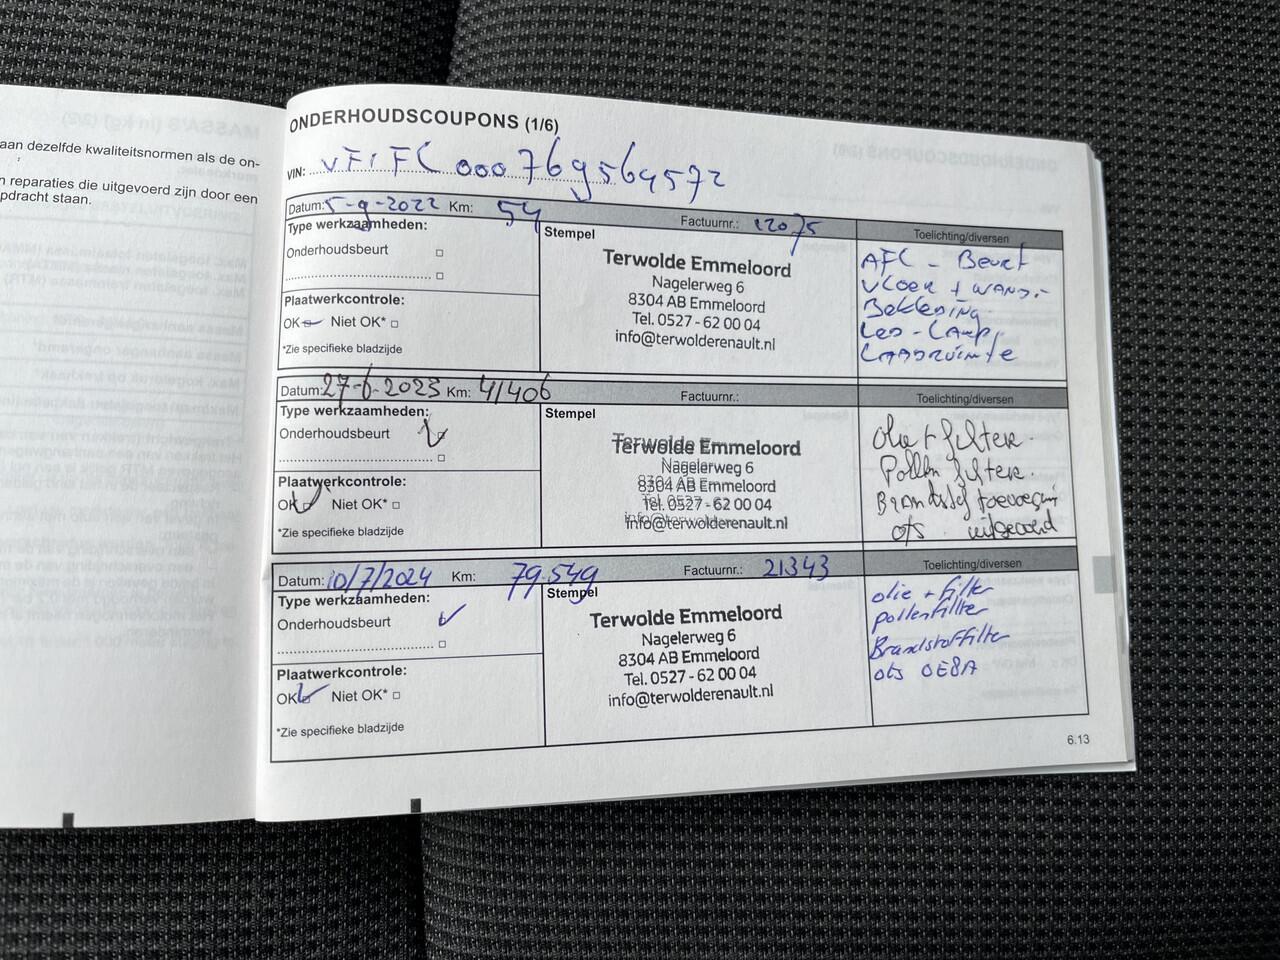 aan dezelfde kwaliteitsnormen als de on-
n reparaties die uitgevoerd zijn door een
pdracht staan.
ONDERHOUDSCOUPONS (1/6)
VIN: VF1FC000769569572
Datum: 5-9-2022 Km: 54 Factuurnr.: 12075
Type werkzaamheden:
Onderhoudsbeurt
Plaatwerkcontrole:
OK Niet OK*
*Zie specifieke bladzijde
Stempel
Terwolde Emmeloord
Nagelerweg 6
8304 AB Emmeloord
Tel. 0527 - 62 00 04
info@terwolderenault.nl
Toelichting/diversen
AFL - Beurt
VLOER + WAND.-
Bekleding
LED - LAMP
LAADRUIMTE
Datum: 27-6-2023 Km: 41406 Factuurnr.:
Type werkzaamheden:
Onderhoudsbeurt
Plaatwerkcontrole:
OK Niet OK*
*Zie specifieke bladzijde
Stempel
Terwolde Emmeloord
Nagelerweg 6
8304 AB Emmeloord
Tel. 0527 - 62 00 04
info@terwolderenault.nl
Toelichting/diversen
Olie + filter
Pollen filter
ots uitgevoerd
Datum: 10/7/2024 Km: 79.549 Factuurnr.: 21343
Type werkzaamheden:
Onderhoudsbeurt
Plaatwerkcontrole:
OK Niet OK*
*Zie specifieke bladzijde
Stempel
Terwolde Emmeloord
Nagelerweg 6
8304 AB Emmeloord
Tel. 0527 - 62 00 04
info@terwolderenault.nl
Toelichting/diversen
olie + filter
pollenfilter
Brandstoffilter
ots OE8A
6.13